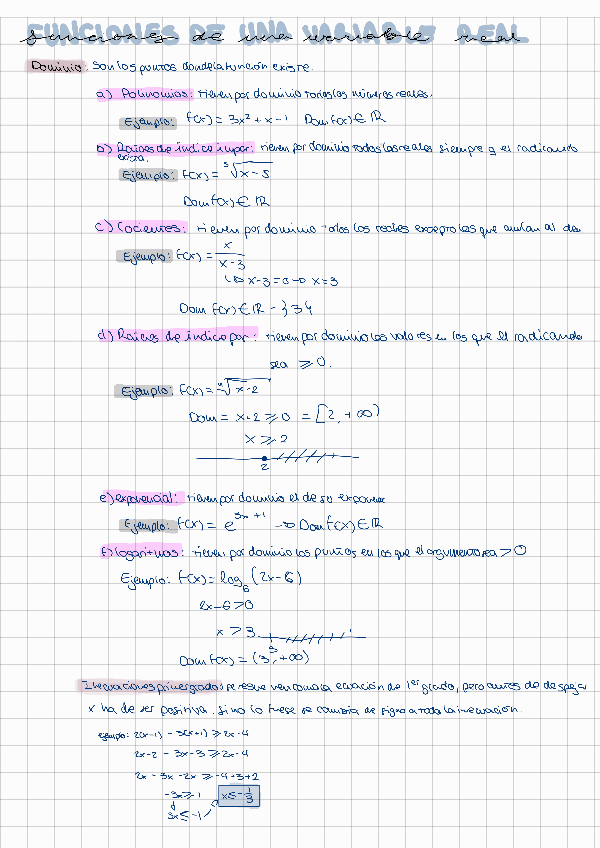 FUNCIONES DE UNA VARIABLE REAL
funciones de una variable real
Dominio: son los puntos donde la función existe.
a) Polinomios: tienen por dominio todos los números reales.
Ejemplo: f(x) = 3x² + x - 1 Dom f(x) ∈ ℝ
b) Raíces de índice impar: tienen por dominio todos los reales siempre q el radicando
exista.
Ejemplo: f(x) = ⁵√x - 5
Dom f(x) ∈ ℝ
c) Cocientes: tienen por dominio todos los reales excepto los que anulan al den
Ejemplo: f(x) = x / x - 3
↳ x - 3 = 0 → x = 3
Dom f(x) ∈ ℝ - {3}
d) Raíces de índice par: tienen por dominio los valores en los que el radicando
sea ≥ 0.
Ejemplo: f(x) = ⁴√x - 2
Dom = x - 2 ≥ 0 = [2, +∞)
x ≥ 2
2
e) exponencial: tienen por dominio el de su exponente
Ejemplo: f(x) = e^(3x + 1) → Dom f(x) ∈ ℝ
f) logaritmos: tienen por dominio los puntos en los que el argumento sea > 0
Ejemplo: f(x) = log₆ (2x - 6)
2x - 6 > 0
x > 3
3
Dom f(x) = (3, +∞)
Inecuaciones primer grado: se resuelven como la ecuación de 1er grado, pero antes de despejar
x ha de ser positiva. Si no lo fuese se cambia de signo a toda la inecuación.
ejemplo: 2(x-1) - 3(x+1) ≥ 2x - 4
2x - 2 - 3x - 3 ≥ 2x - 4
2x - 3x - 2x ≥ -4 + 3 + 2
-3x ≥ 1 x ≤ -1/3
3x ≤ -1